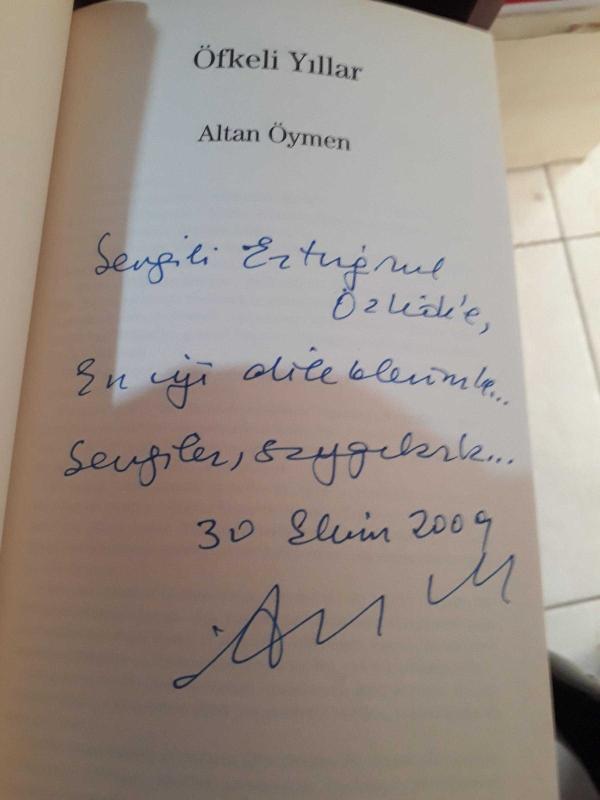 Öfkeli Yıllar
Altan Öymen
Sevgili Ertuğrul
Özkök'e,
En iyi dileklerimle...
Sevgiler, saygılarla...
30 Ekim 2009